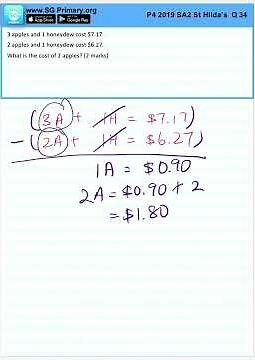 www.SG Primary.org
App Store Google Play
P4 2019 SA2 St Hilda's Q 34
3 apples and 1 honeydew cost $7.17
2 apples and 1 honeydew cost $6.27.
What is the cost of 2 apples? [2 marks]
(3A + 1H = $7.17)
- (2A + 1H = $6.27)
1A = $0.90
2A = $0.90 + 2
= $1.80